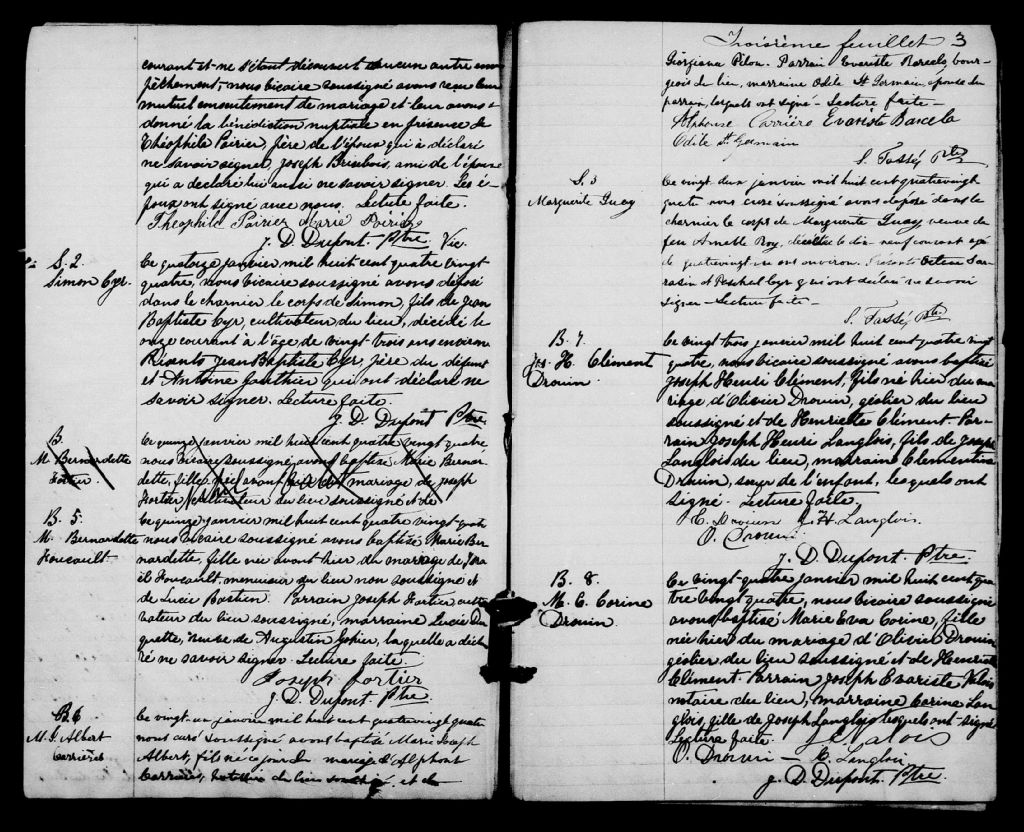 courant et ne s'étant découvert aucun autre em
pêchement, nous vicaire soussigné avons reçu leur
mutuel consentement de mariage et leur avons
donné la bénédiction nuptiale en présence de
Théophile Poirier, père de l'époux qui a déclaré
ne savoir signer, Joseph Brisebois, ami de l'épouse
qui a déclaré lui aussi ne savoir signer. Les é-
poux ont signé avec nous. Lecture faite.
Théophile Poirier Marie Poirier
J. D. Dupont. Ptre Vic.
S. 2.
Simon Cyr.
Ce quatorze janvier mil huit cent quatre vingt
quatre, nous vicaire soussigné avons déposé
dans le charnier le corps de Simon, fils de Jean
Baptiste Cyr, cultivateur du lieu, décédé le
onze courant à l'âge de vingt trois ans environ
Présents Jean Baptiste Cyr, père du défunt
et Antoine Gauthier qui ont déclaré ne
savoir signer. Lecture faite.
J. D. Dupont Ptre
B.
M. Bernardette
Fortier.
Ce quinze janvier mil huit cent quatre vingt quatre
nous vicaire soussigné avons baptisé Marie Bernar-
dette, fille née avant hier du mariage de Joseph
Fortier cultivateur du lieu soussigné et de
B. 5.
M. Bernardette
Foucault.
Ce quinze janvier mil huit cent quatre vingt quatre
nous vicaire soussigné avons baptisé Marie Ber
nardette, fille née avant hier du mariage de Isra
ël Foucault, menuisier du lieu non soussigné et
de Lucie Bastien. Parrain Joseph Fortier, culti
vateur du lieu soussigné, marraine Lucie Du
quette, veuve de Augustin, laquelle a décla
ré ne savoir signer. Lecture faite.
Joseph Fortier
J. D. Dupont Ptre.
B. 6
M. J. Albert
Carrière
Ce vingt-un janvier mil huit cent quatrevingt quatre
nous curé soussigné avons baptisé Marie Joseph
Albert, fils né ce jour du mariage d'Alphonse
Carrière, notaire du lieu soussigné, et de
Troisième feuillet 3
Georgiana Pilon. Parrain Evariste Barcelo, bour-
geois du lieu, marraine Odile St Germain, épouse du
parrain, lesquels ont signé – Lecture faite –
Alphonse Carrière Evariste Barcelo
Odile St Germain
S. Tassé, Ptre
S. 3
Marguerite Guay
Ce vingt deux janvier mil huit cent quatrevingt
quatre nous curé soussigné avons déposé dans le
charnier le corps de Marguerite Guay, veuve de
feu Amable Roy, décédée le dix-neuf courant agée
de quatrevingt un ans environ. Présents Octave Sar-
rasin et Paschal Cyr qui ont déclaré ne savoir
signer – Lecture faite –
S. Tassé, Ptre
B. 7.
Js. H. Clément
Drouin.
Ce vingt trois janvier mil huit cent quatre vingt
quatre, nous vicaire soussigné avons baptisé
Joseph Henri Clément, fils né hier du ma-
riage d'Olivier Drouin, geôlier du lieu
soussigné et de Henriette Clément. Par-
rain Joseph Henri Langlois, fils de Joseph
Langlois du lieu, marraine Clémentine
Drouin, soeur de l'enfant, lesquels ont
signé. Lecture faite.
C. Drouin J. H. Langlois.
O. Drouin.
J. D. Dupont. Ptre.
B. 8.
M. E. Corine
Drouin
Ce vingt-quatre janvier mil huit cent qua-
tre vingt quatre, nous vicaire soussigné
avons baptisé Marie Eva Corine, fille
née hier du mariage d'Olivier Drouin
geôlier du lieu soussigné et de Henriette
Clément. Parrain Joseph Evariste Valois
notaire du lieu, marraine Corine Lan
glois, fille de Joseph Langlois lesquels ont signé
Lecture faite. J. E. Valois
O. Drouin – C. Langlois
J. D. Dupont. Ptre.